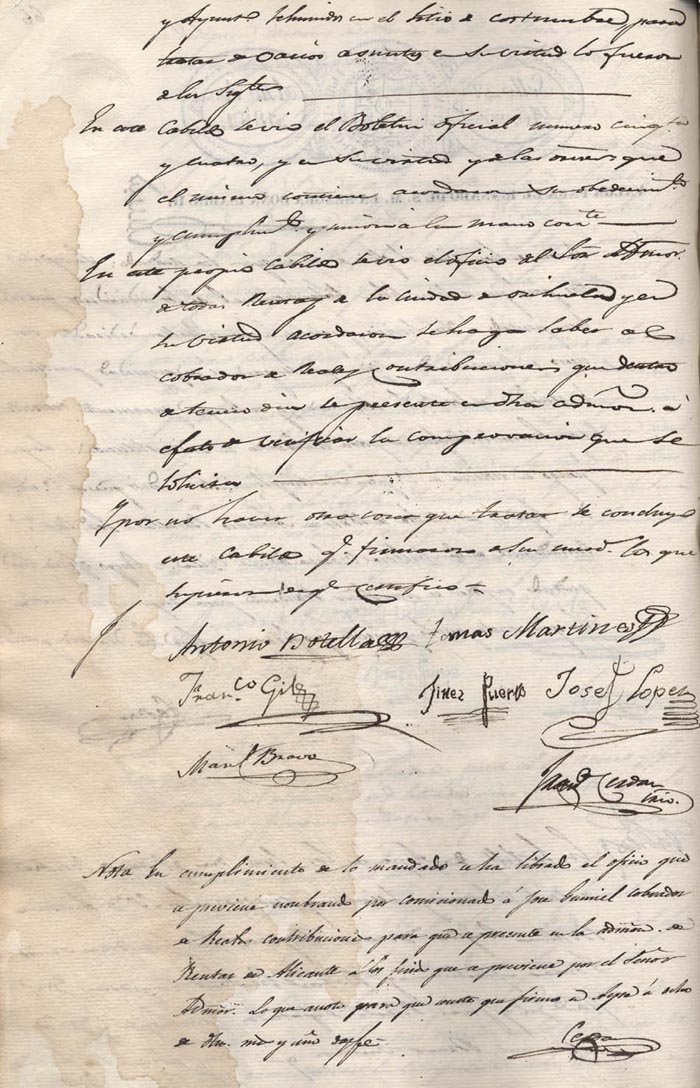 y Ayunt.º reunidos en el sitio de costumbre, para
tratar de varios asuntos en su virtud lo fueron
a los Sig.tes
En este Cabildo se vio el Boletin oficial numero cinq.ta
y cuatro, y en su virtud y de las ordenes que
el mismo contiene acordaron su obedecim.to
y cumplim.to y union a la mano corr.te
En este propio Cabildo se vio el oficio del Sor. Admor.
de todas Rentas de la Ciudad de Orihuela y en
su virtud acordaron se haga saber al
cobrador de Reales contribuciones que dentro
de tercero dia se presente en dha admon. á
efecto de verificar la comprovacion que se
Y por no haver otra cosa que tratar se concluyo
este Cabildo q.e firmaron sus mrds. los que
supieron de q.e certifico
Antonio Botella Tomas Martinez
Fran.co Gil Jinez Puerto Josef Lopez
Man.l Bravo
Nota En cumplimiento de lo mandado se ha librado el oficio que
se previene nombrando por comicionado á Jose Guniel cobrador
de Reales contribuciones para que se presente en la admon. de
Rentas de Alicante á los fines que se previene por el Señor
Admor. Lo que anoto para que conste que firmo en á ocho
de dho. mes y año doy fe